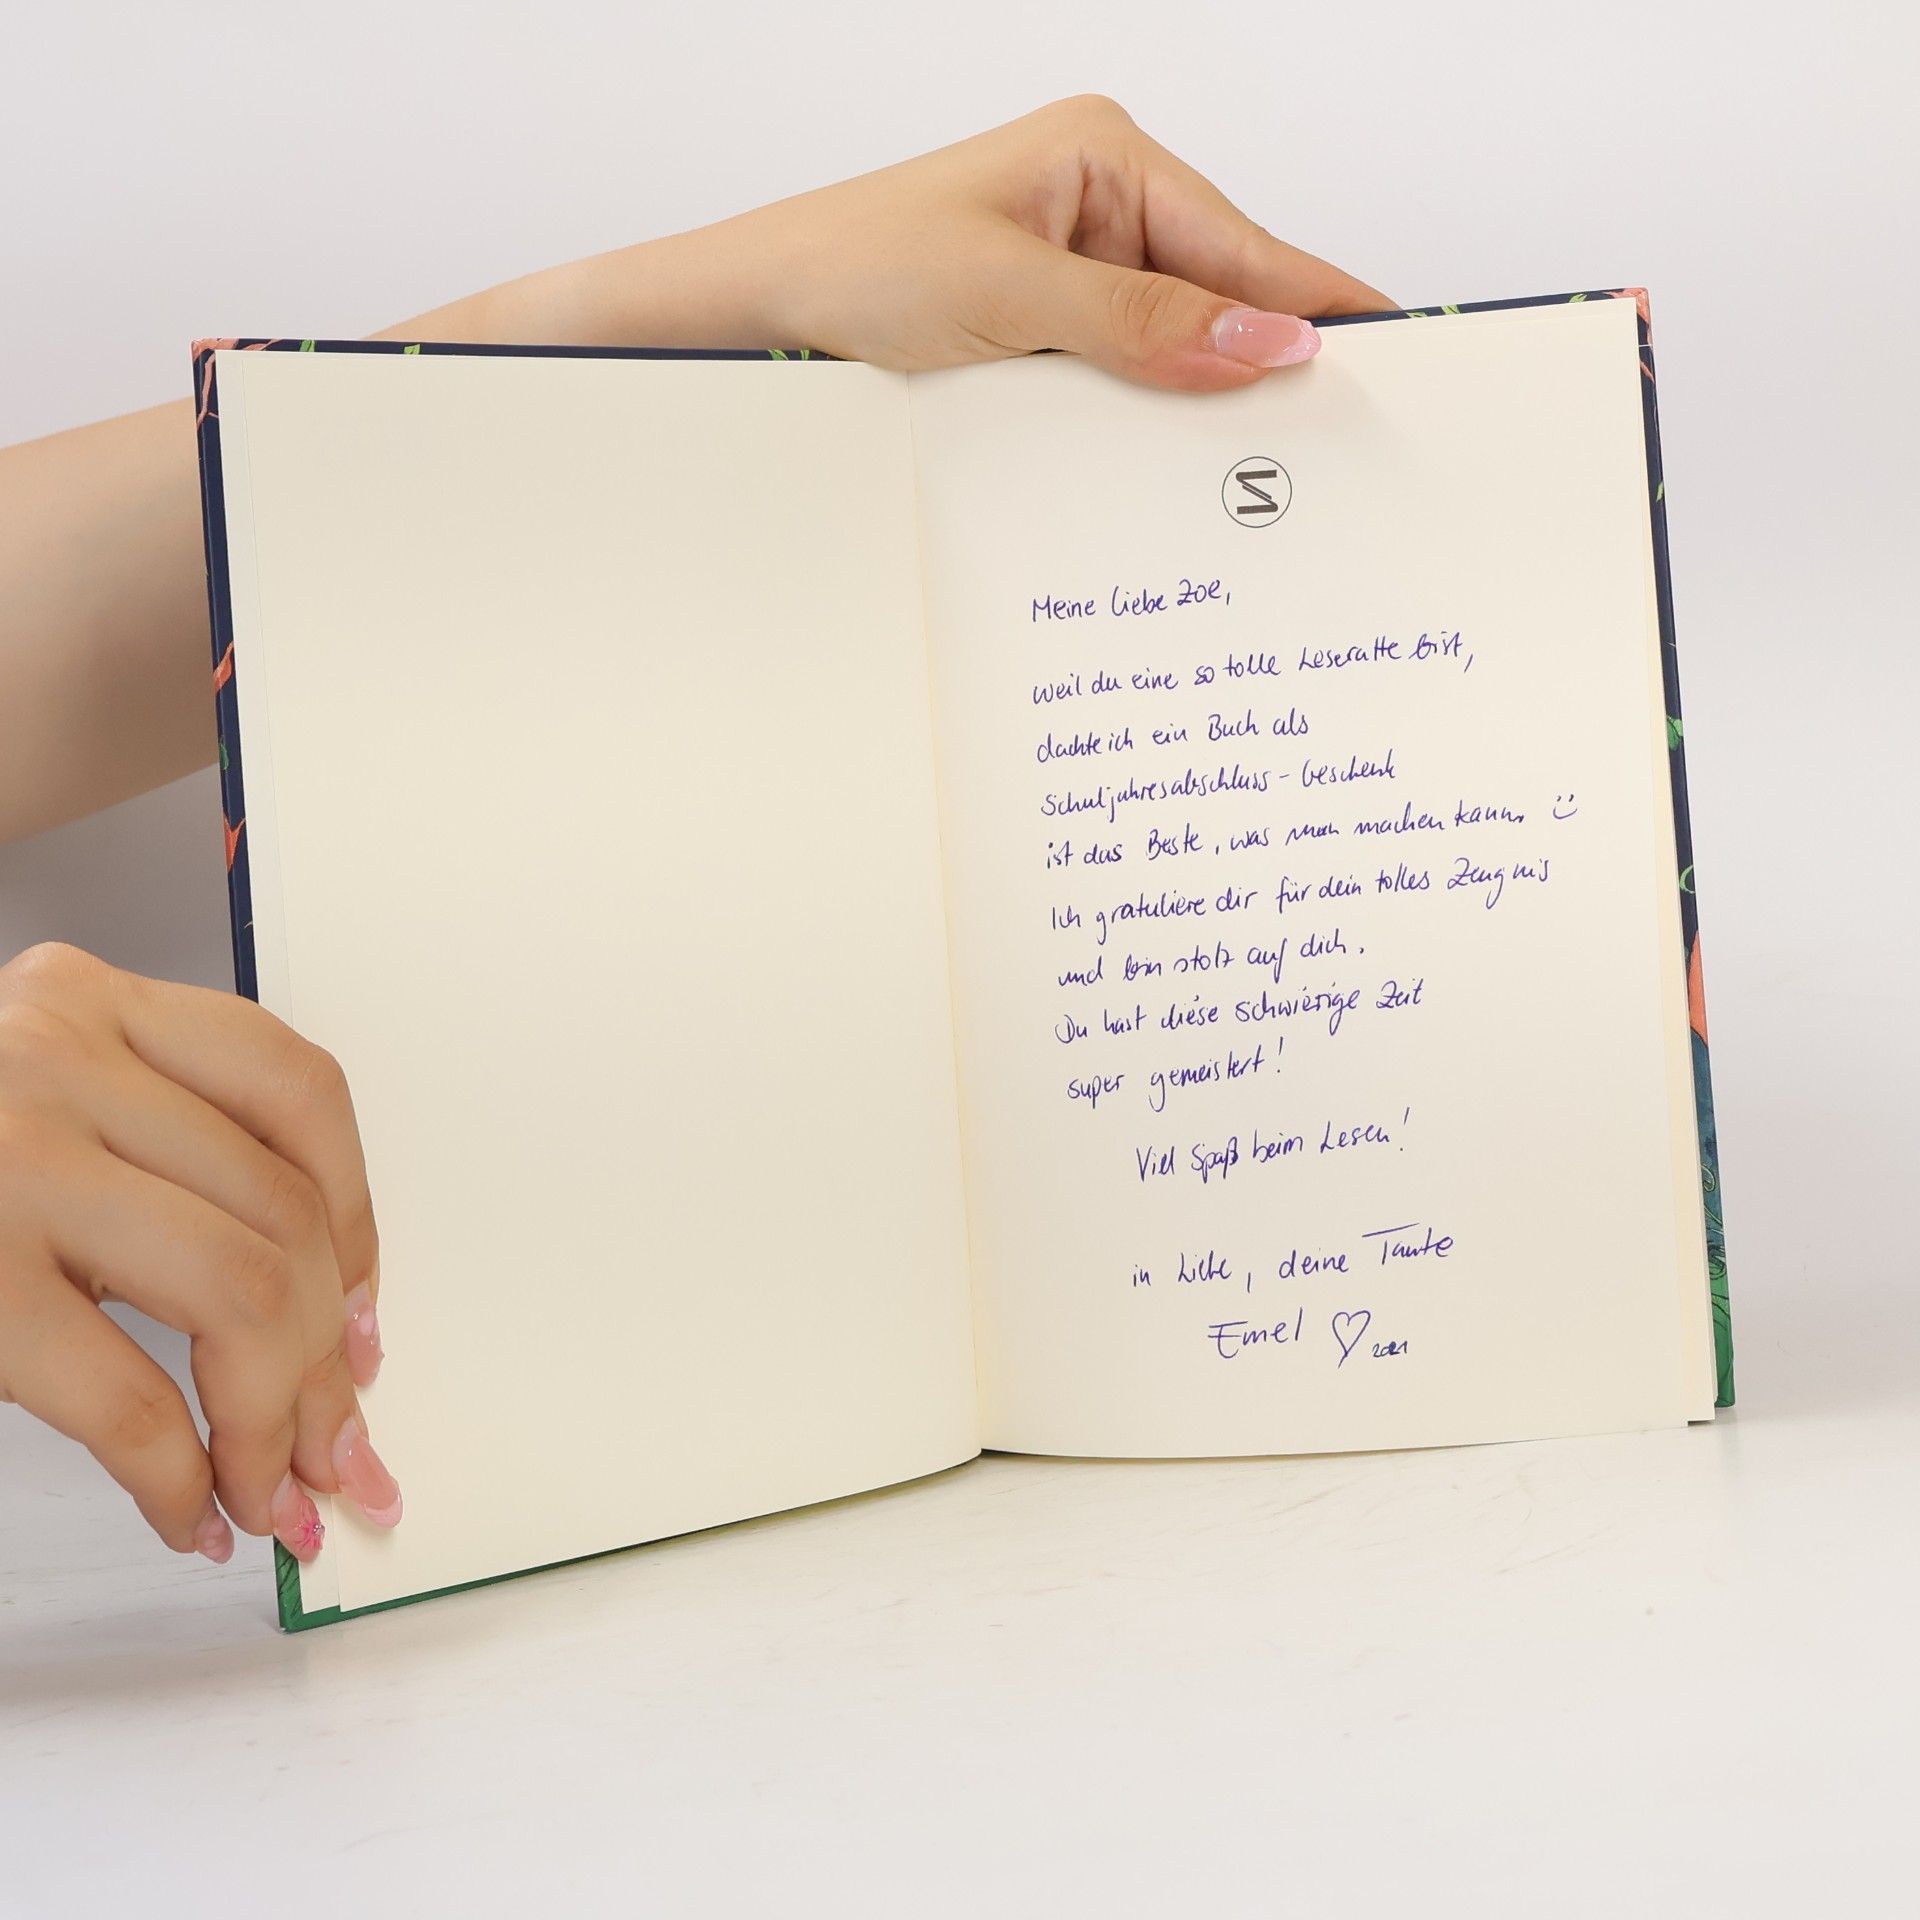 Meine liebe Zoe,
weil du eine so tolle Leseratte bist,
dachte ich ein Buch als
Schuljahresabschluss-Geschenk
ist das Beste, was man machen kann. :)
Ich gratuliere dir für dein tolles Zeugnis
und bin stolz auf dich.
Du hast diese schwierige Zeit
super gemeistert!
Viel Spaß beim Lesen!
in Liebe, deine Tante
Emel ♡ 2021